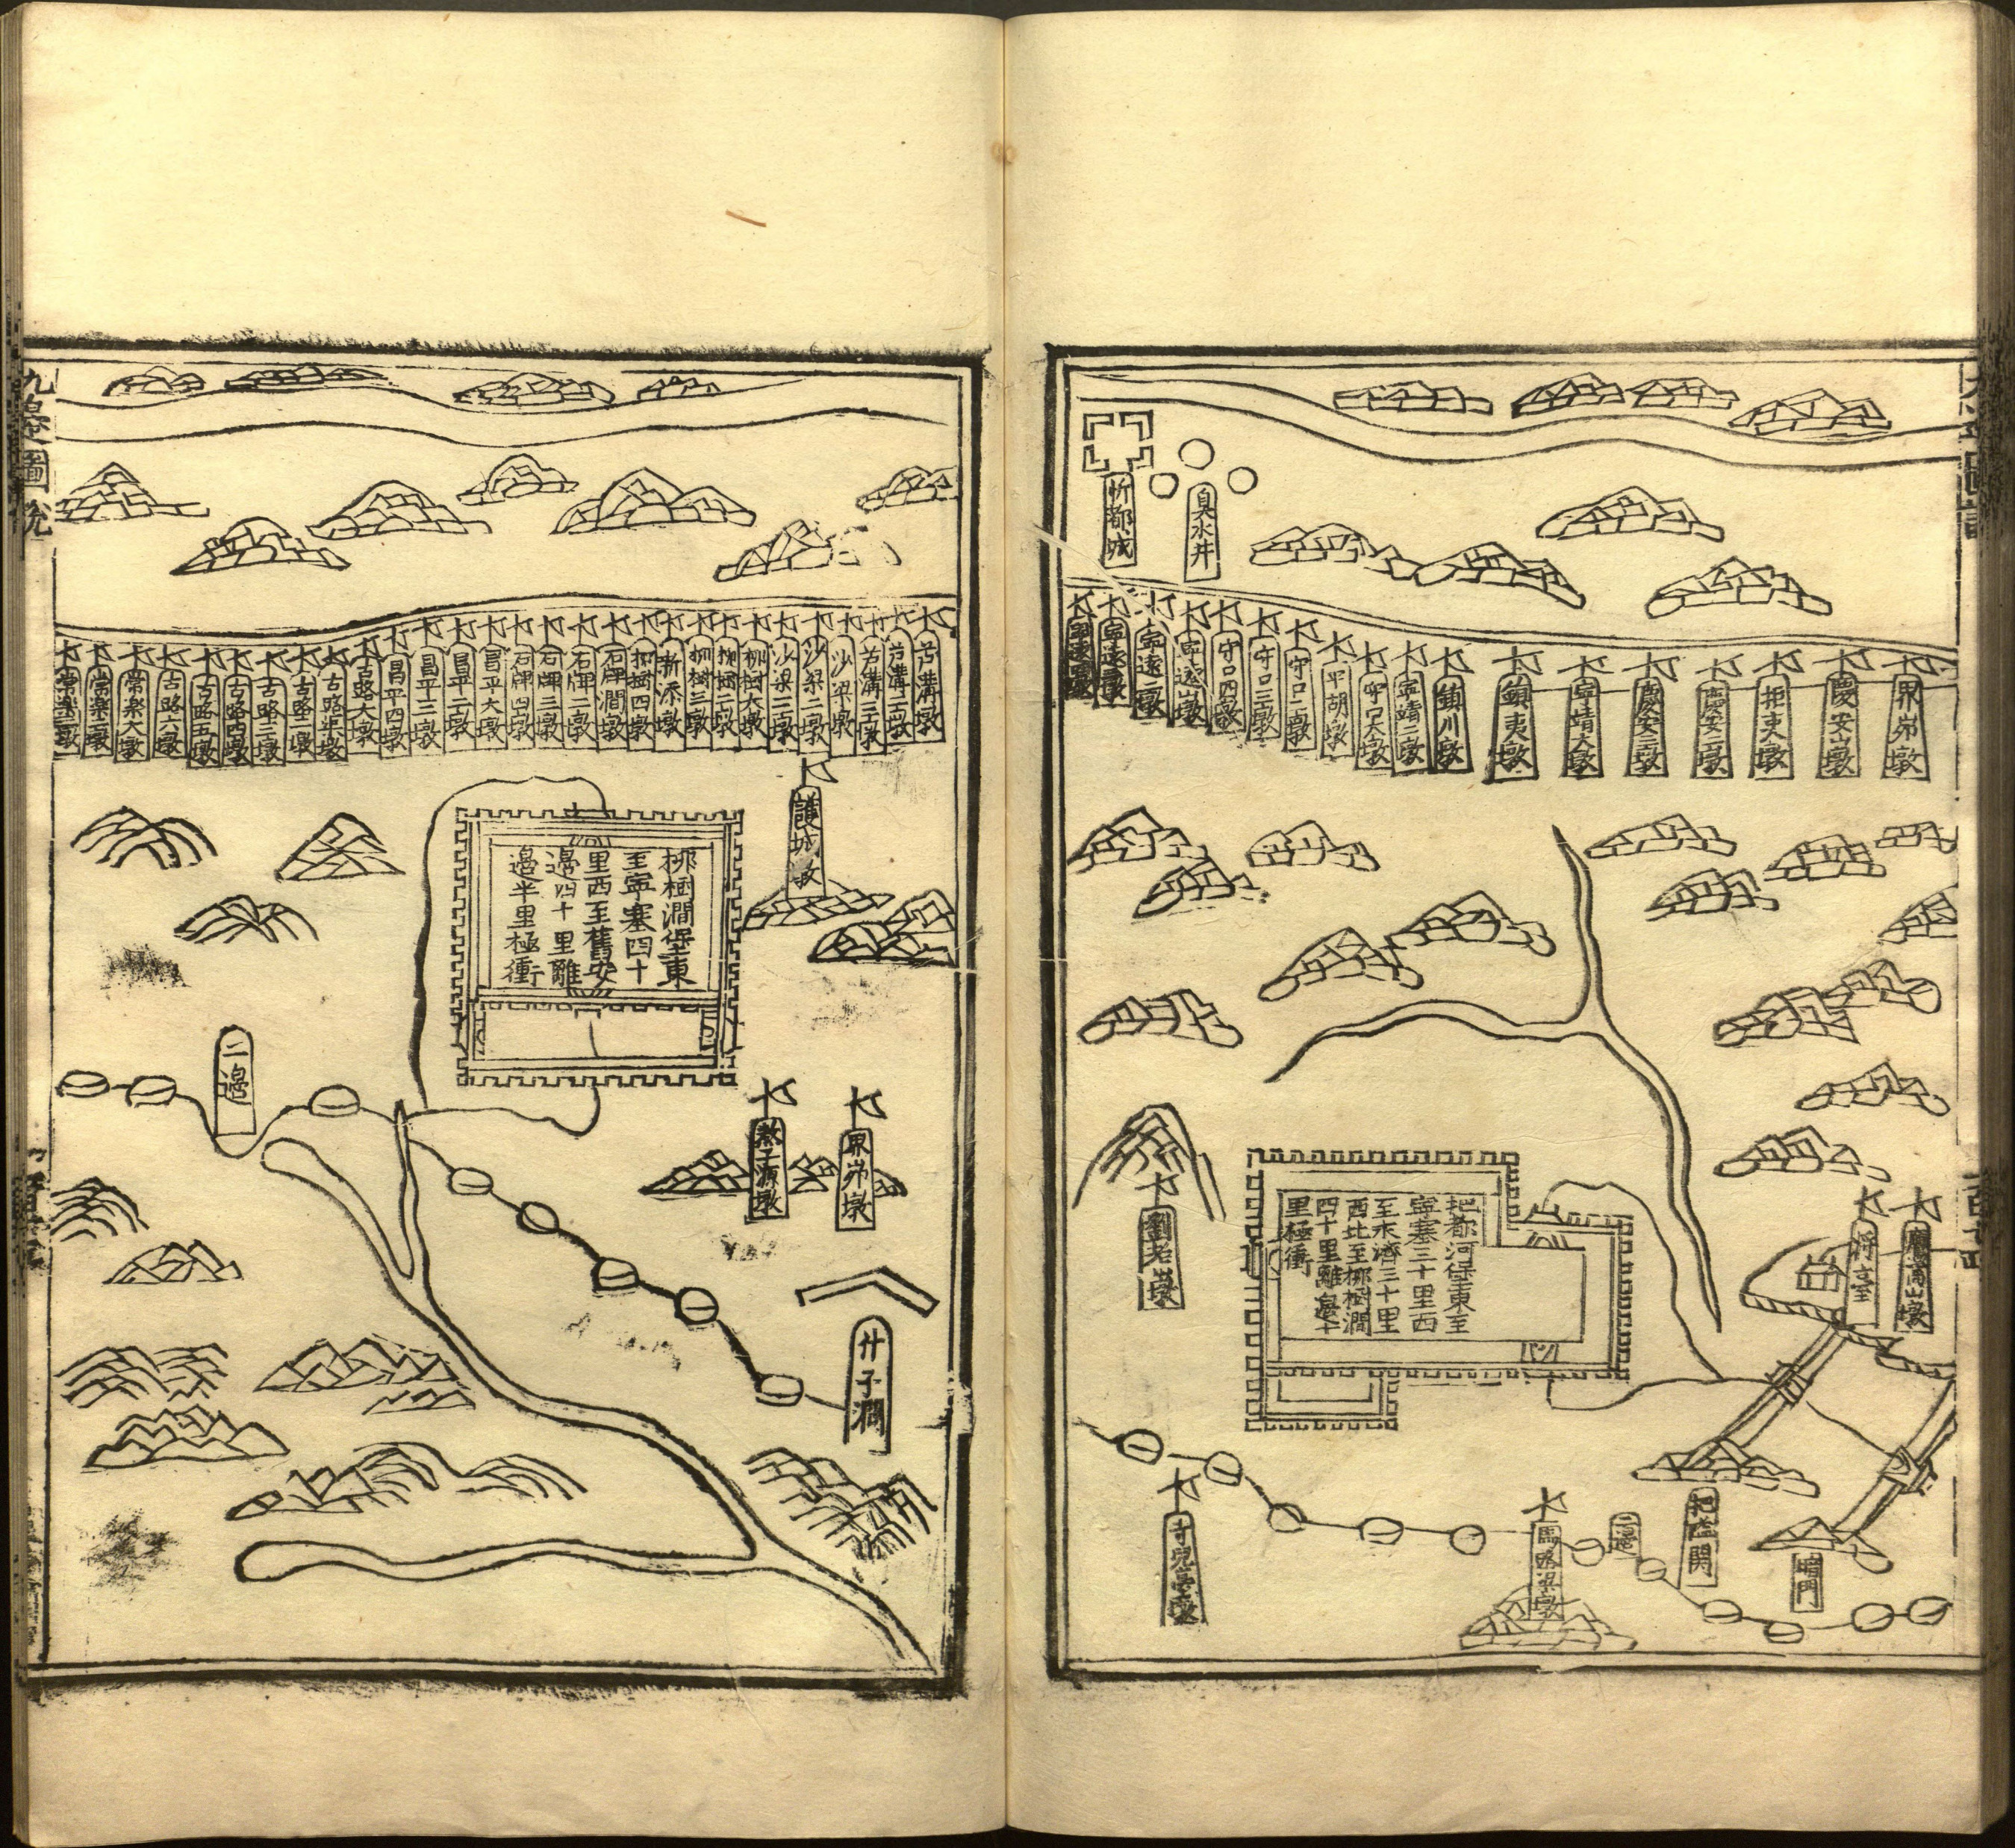 忻都城
臭水井
界峁墩
慶安墩
拒夷墩
慶安二墩
慶安三墩
寧靖大墩
鎮夷墩
鎮川墩
寧靖二墩
平胡墩
守口二墩
守口三墩
守口四墩
把都河堡東至
寧塞三十里西
至永濟三十里
西北至柳樹澗
四十里離邊十
里極衝
將臺
劉峁墩
把隘關
暗門
二邊
馬路梁墩
九邊圖說
苦溝墩
苦溝二墩
苦溝三墩
沙梁墩
沙梁二墩
沙梁三墩
柳樹大墩
柳樹二墩
柳樹三墩
新添墩
柳樹四墩
石牌澗墩
石牌二墩
石牌三墩
石牌四墩
昌平大墩
昌平二墩
昌平三墩
昌平四墩
古路大墩
古路渠墩
古路二墩
古路三墩
古路四墩
古路五墩
古路六墩
常樂大墩
常樂二墩
常樂三墩
護城墩
柳樹澗堡東
至寧塞四十
里西至舊安
邊四十里離
邊半里極衝
二邊
界峁墩
熬子源墩
廾子澗